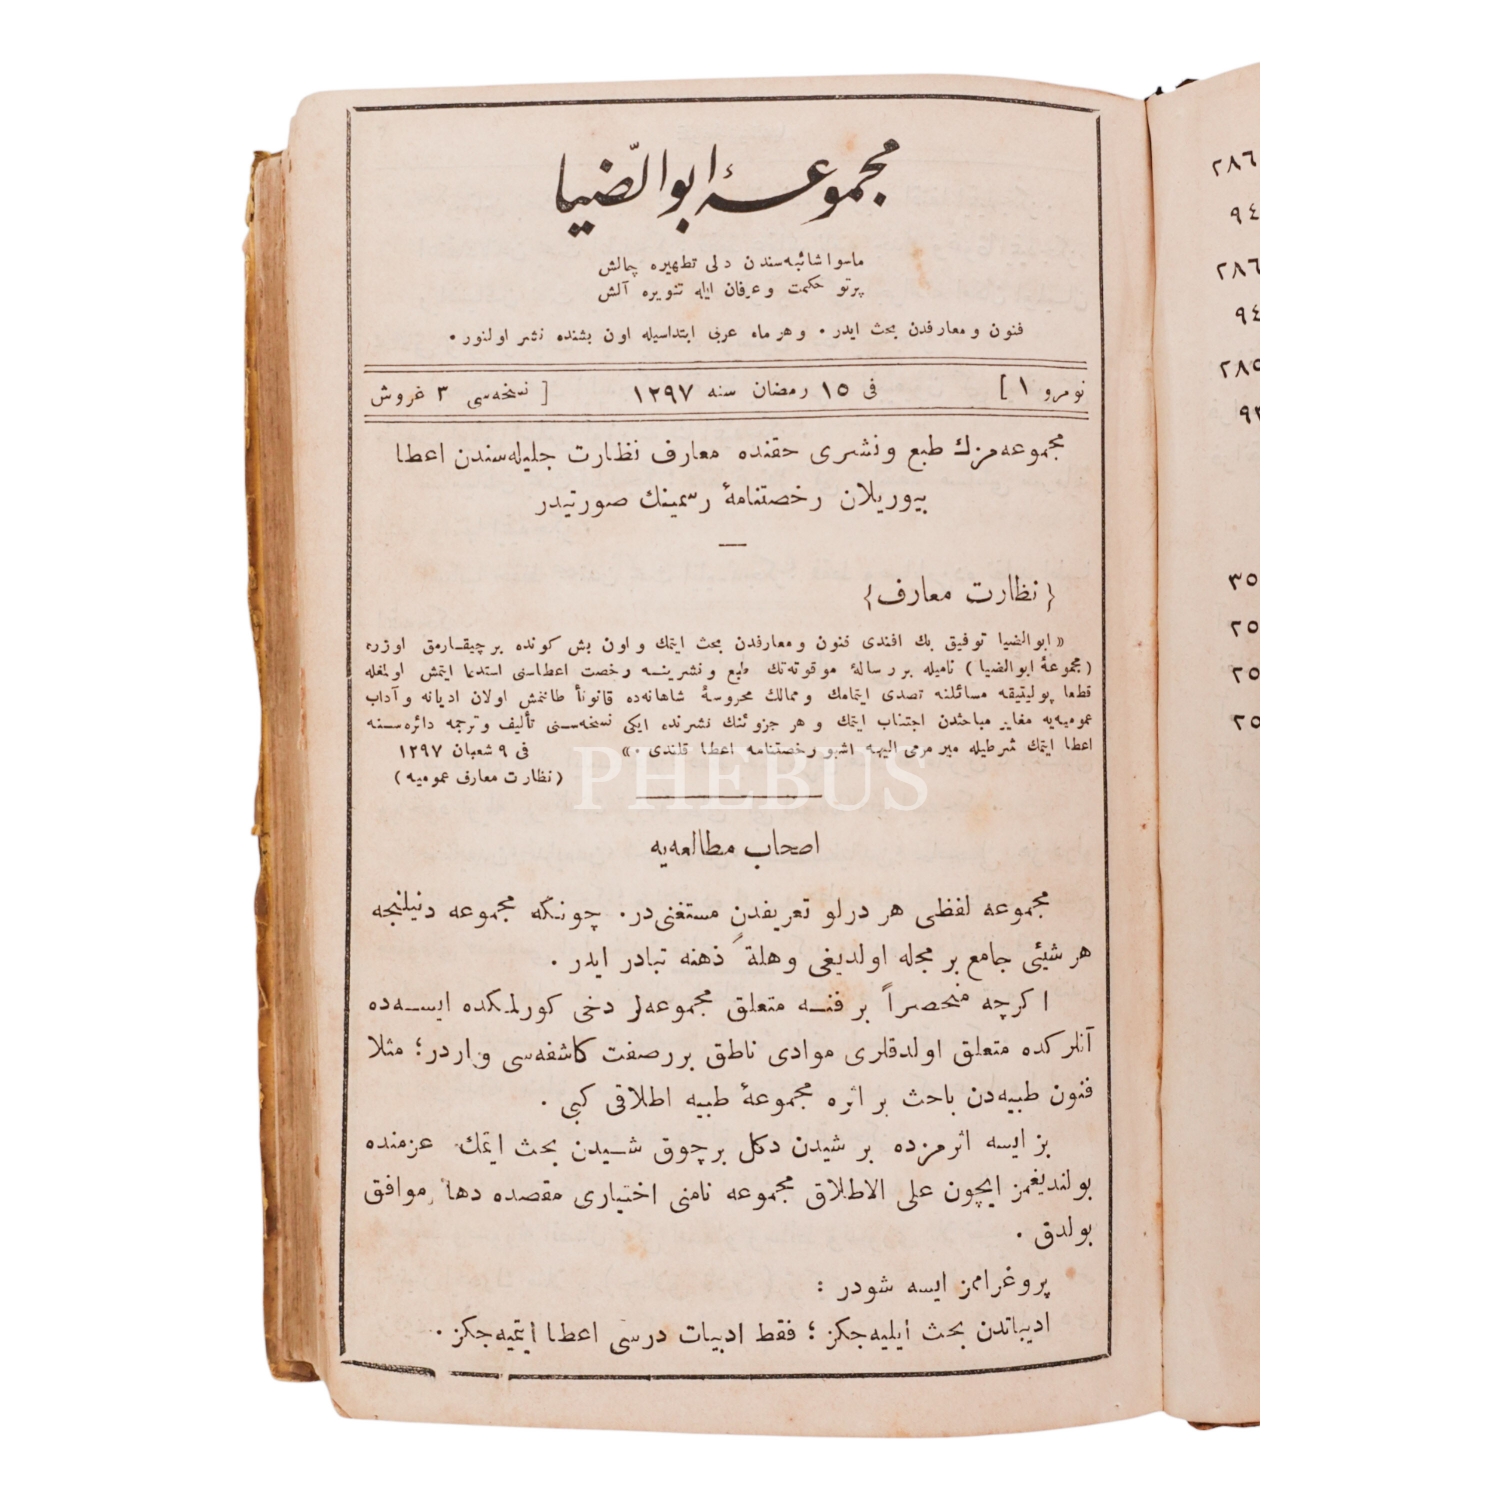 مجموعهٔ ابوالضّیا
ماسوا شائبه‌سندن دلی تطهیره چالش
پرتو حکمت وعرفان ایله تنویره آلش
فنون ومعارفدن بحث ایدر. وهر ماه عربی ابتداسیله اون بشنده نشر اولنور.
نومرو ١ ] فی ١٥ رمضان سنه ١٢٩٧ [ نسخه‌سی ٣ غروش
مجموعه‌مزك طبع ونشری حقنده معارف نظارت جلیله‌سندن اعطا
بیوریلان رخصتنامهٔ رسمینك صورتیدر
{نظارت معارف}
«ابوالضیا توفیق بك افندی فنون ومعارفدن بحث ایتمك واون بش كونده بر چیقارمق اوزره
(مجموعهٔ ابوالضیا) نامیله بر رسالهٔ موقوته‌نك طبع ونشرینه رخصت اعطاسنی استدعا ایتمش اولمغله
قطعا پولیتیقه مسائلنه تصدی ایتمامك وممالك محروسهٔ شاهانه‌ده قانوناً طانتمش اولان ادیانه وآداب
عمومیه‌یه مغایر مباحثدن اجتناب ایتمك وهر جزوئنك نشرنده ایكی نسخه‌سنی تألیف وترجمه دائره‌سنه
اعطا ایتمك شرطیله میر مومی الیهه اشبو رخصتنامه اعطا قلندی.» فی ٩ شعبان ١٢٩٧
(نظارت معارف عمومیه)
PHEBUS
اصحاب مطالعه‌یه
مجموعه لفظی هر درلو تعریفدن مستغنی‌در. چونكه مجموعه دنیلنجه
هر شیئی جامع بر مجله اولدیغی وهلةً ذهنه تبادر ایدر.
اكرچه منحصراً بر فنه متعلق مجموعه‌لر دخی كورلمكده ایسه‌ده
آنلركده متعلق اولدقلری موادی ناطق بررصفت كاشفه‌سی واردر؛ مثلا
فنون طبیه‌دن باحث بر اثره مجموعهٔ طبیه اطلاقی كبی.
بز ایسه اثرمزده بر شیدن دكل برچوق شیدن بحث ایتمك عزمنده
بولندیغمز ایچون علی الاطلاق مجموعه نامنی اختیاری مقصده دها موافق
بولدق.
پروغرامز ایسه شودر:
ادبیاتدن بحث ایلیه‌جكز؛ فقط ادبیات درسی اعطا ایتمیه‌جكز.
٢٨٦
٩٤
٢٨٦
٩٤
٢٨٥
٣٥
٢٥
٢٥
٢٥